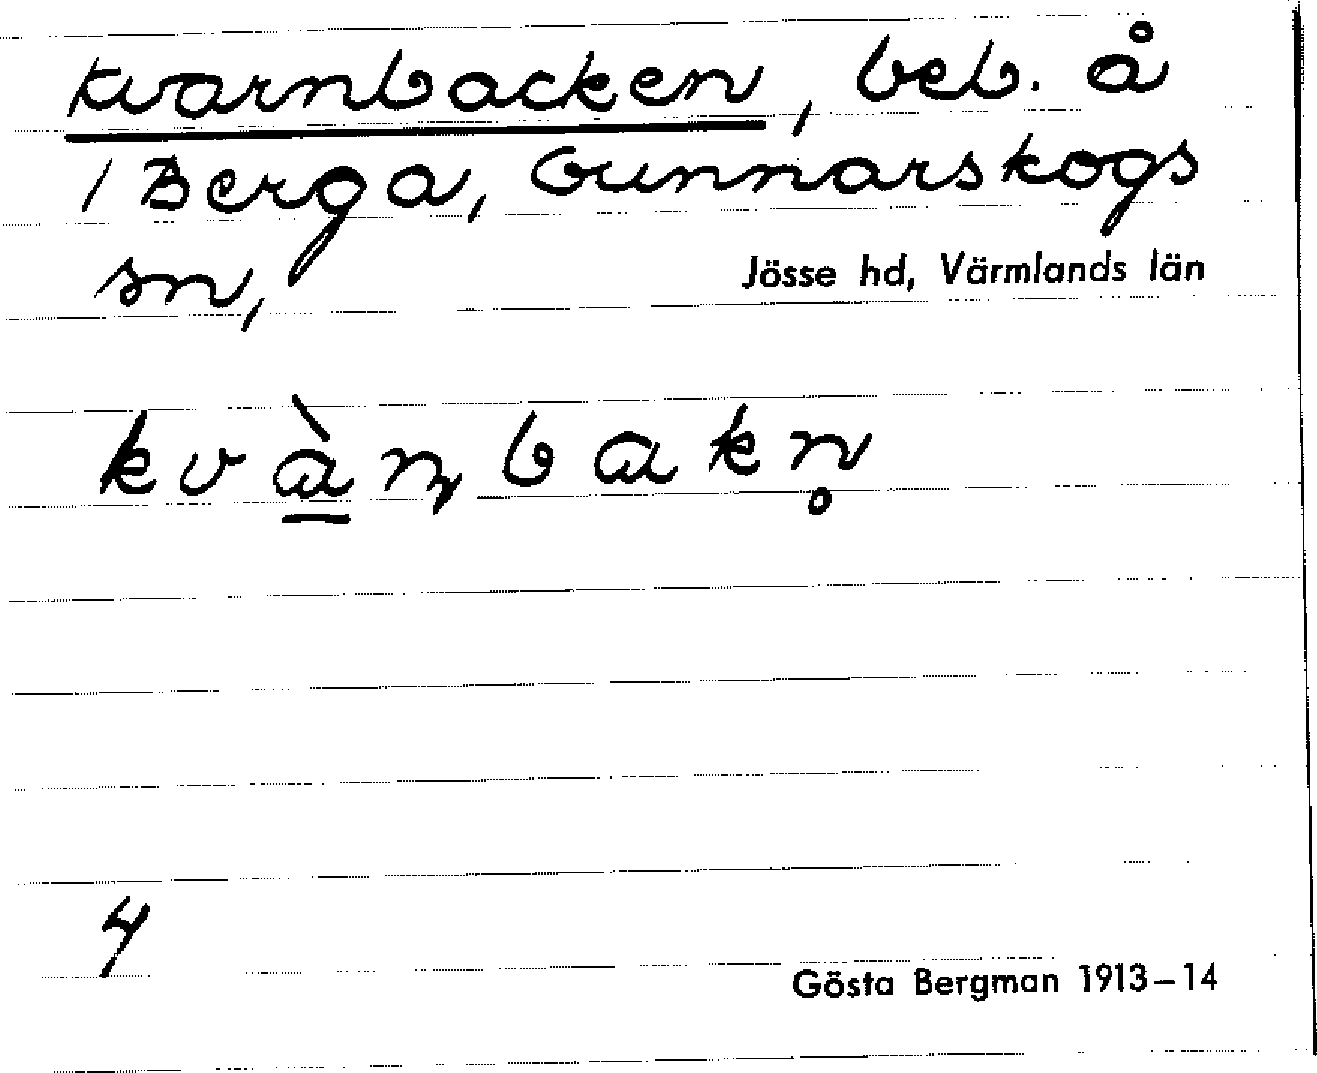 kvarnbacken, beb. å
1 Berga, Gunnarskogs
sn, Jösse hd, Värmlands län
kvɑ̠̀ɳbɑkn̥
4
Gösta Bergman 1913–14